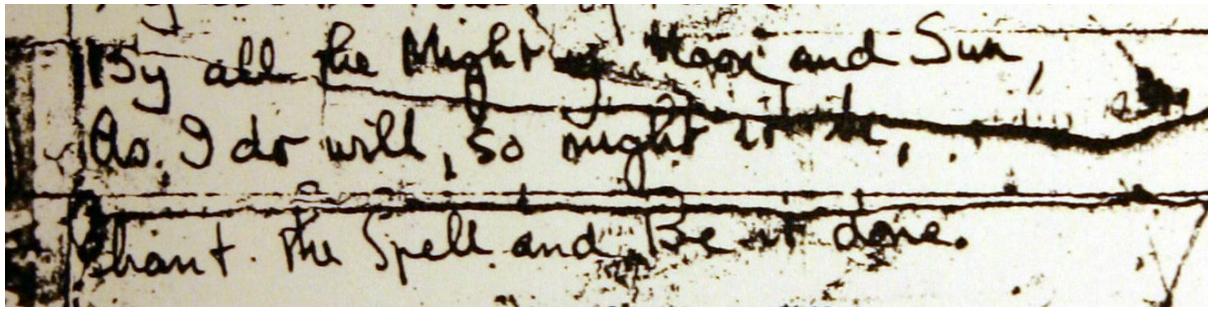 By all the Might of Moon and Sun,
As I do will, so might it be,
Chant the Spell and Be it done.